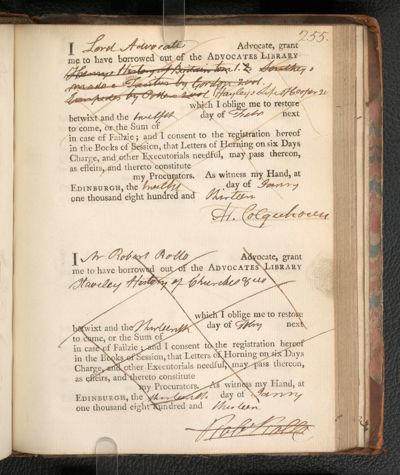 255.
I Lord Advocate Advocate, grant
me to have borrowed out of the ADVOCATES LIBRARY
Henrys History of Britain tom. 1. 2. Southey's
Madoc Tacitus by Gordon 2 vol.
by 2 vol Hayley's Life of Cowper 2v
which I oblige me to restore
betwixt and the twelfth day of Feby next
to come, or the Sum of
in case of Failzie; and I consent to the registration hereof
in the Books of Session, that Letters of Horning on six Days
Charge, and other Executorials needful, may pass thereon,
as effeirs, and thereto constitute
my Procurators. As witness my Hand, at
EDINBURGH, the twelfth day of Janry
one thousand eight hundred and thirteen
A. Colquhoun
I Mr Robert Rollo Advocate, grant
me to have borrowed out of the ADVOCATES LIBRARY
Staveley History of Churches 8vo
which I oblige me to restore
betwixt and the thirteenth day of Febry next
to come, or the Sum of
in case of Failzie; and I consent to the registration hereof
in the Books of Session, that Letters of Horning on six Days
Charge, and other Executorials needful, may pass thereon,
as effeirs, and thereto constitute
my Procurators. As witness my Hand, at
EDINBURGH, the thirteenth day of Janry
one thousand eight hundred and thirteen
Robt Rollo